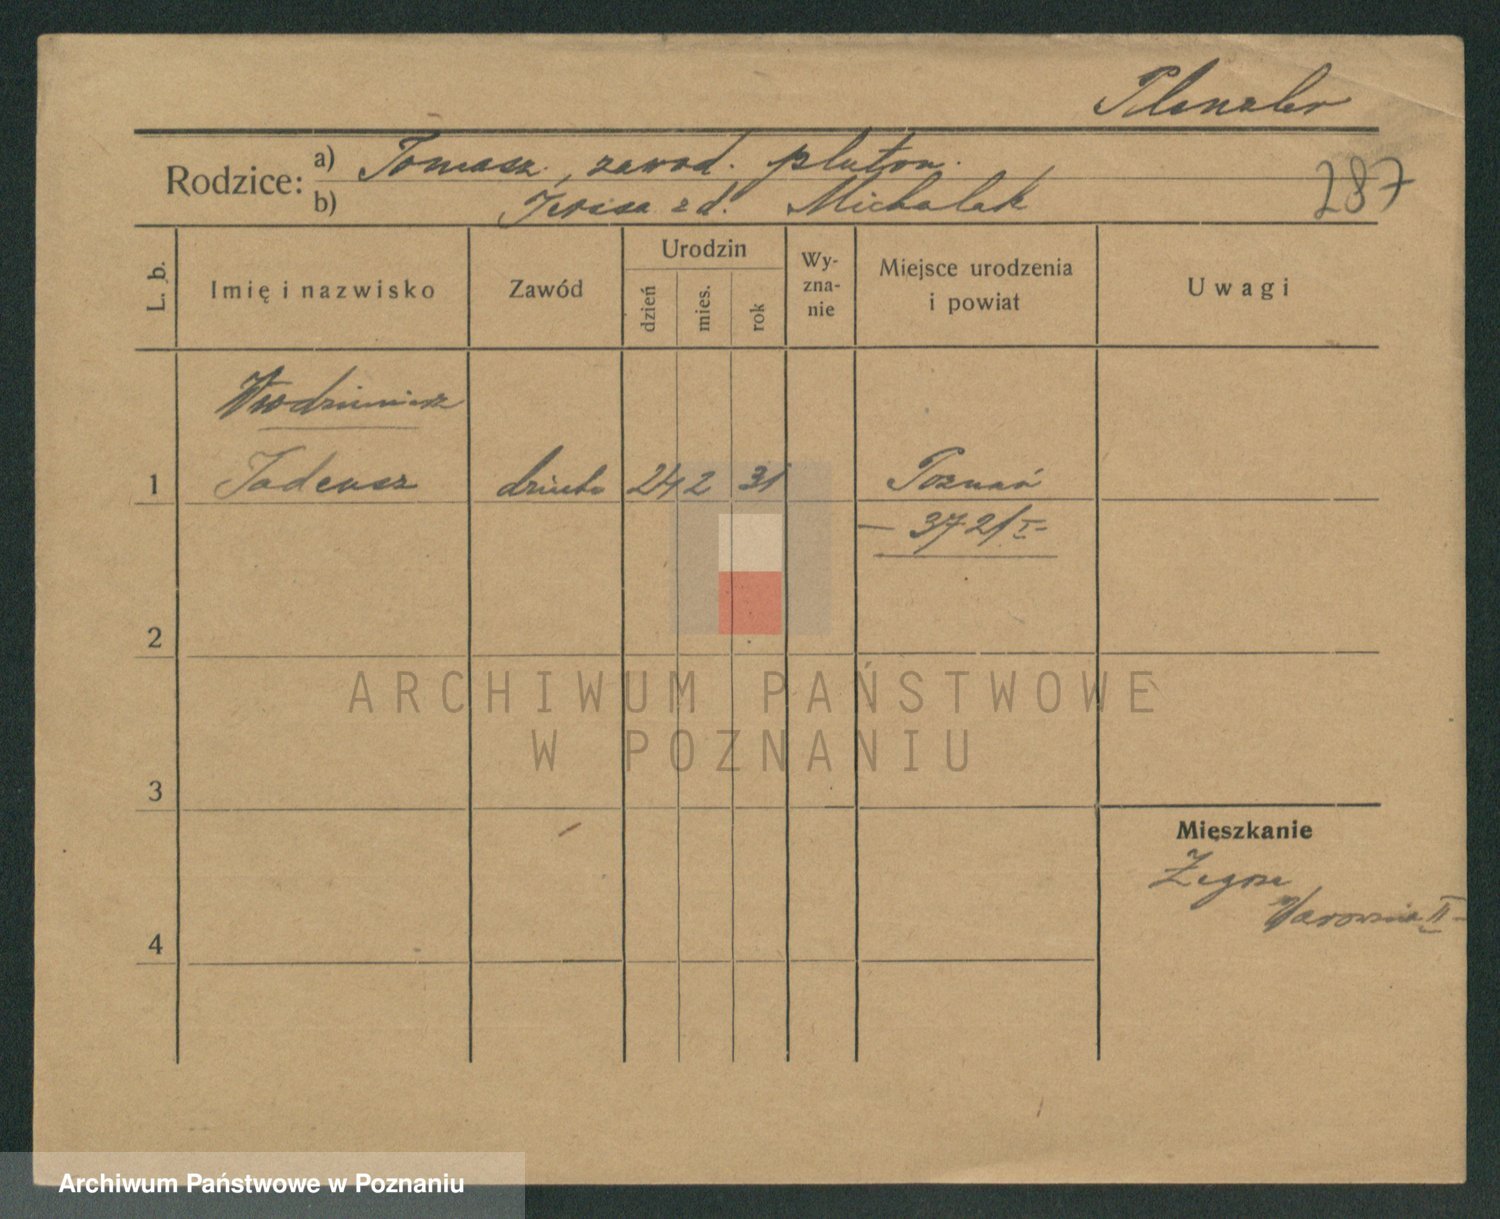 Plenzler
Rodzice: a) Tomasz, zawod. pluton.
b) Teresa z d. Michalak
287
L. b.
Imię i nazwisko
Zawód
Urodzin
dzień
mies.
rok
Wy-
zna-
nie
Miejsce urodzenia
i powiat
Uwagi
Włodzimierz
1 Tadeusz dziecko 24 2 31 Poznań
- 3721/I-
2
3
4
Mieszkanie
Żegrze
Warownia II-
ARCHIWUM PAŃSTWOWE
W POZNANIU
Archiwum Państwowe w Poznaniu